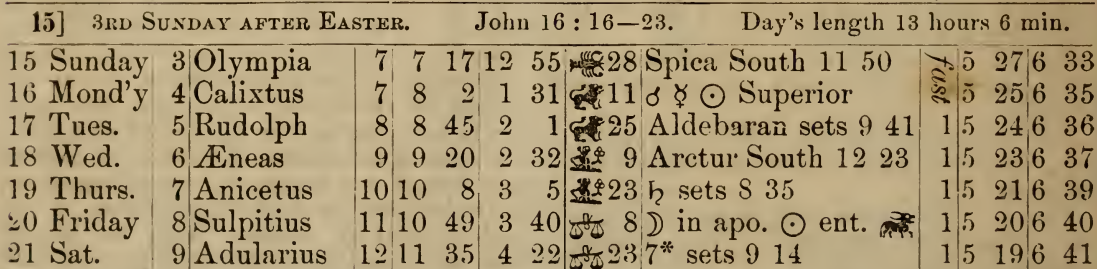 15] 3RD SUNDAY AFTER EASTER. John 16 : 16—23. Day's length 13 hours 6 min.
15 Sunday 3 Olympia 7 7 17 12 55 28 Spica South 11 50 fast 5 27 6 33
16 Mond'y 4 Calixtus 7 8 2 1 31 ♌ 11 ☌ ☿ ☉ Superior 5 25 6 35
17 Tues. 5 Rudolph 8 8 45 2 1 ♌ 25 Aldebaran sets 9 41 1 5 24 6 36
18 Wed. 6 Æneas 9 9 20 2 32 ♍ 9 Arctur South 12 23 1 5 23 6 37
19 Thurs. 7 Anicetus 10 10 8 3 5 ♍ 23 ♄ sets 8 35 1 5 21 6 39
20 Friday 8 Sulpitius 11 10 49 3 40 ♎ 8 ☽ in apo. ☉ ent. ♉ 1 5 20 6 40
21 Sat. 9 Adularius 12 11 35 4 22 ♎ 23 7* sets 9 14 1 5 19 6 41